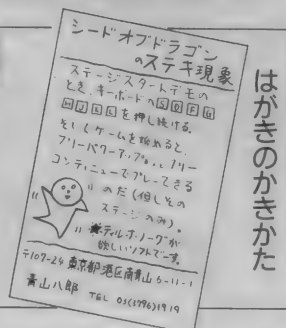 はがきのかきかた
シードオブドラゴン
のステキ現象
ステージスタートデモの
とき、キーボードのSDFG
HJKLを押し続ける。
そしてゲームを始めると、
フリーパワーアップ&、フリー
コンティニューでプレーできる
のだ(但しその
ステージのみ)。
欲しいソフトでーす。
〒107-24 東京都港区南青山5-11-1
青山八郎 TEL 03(3796)1919